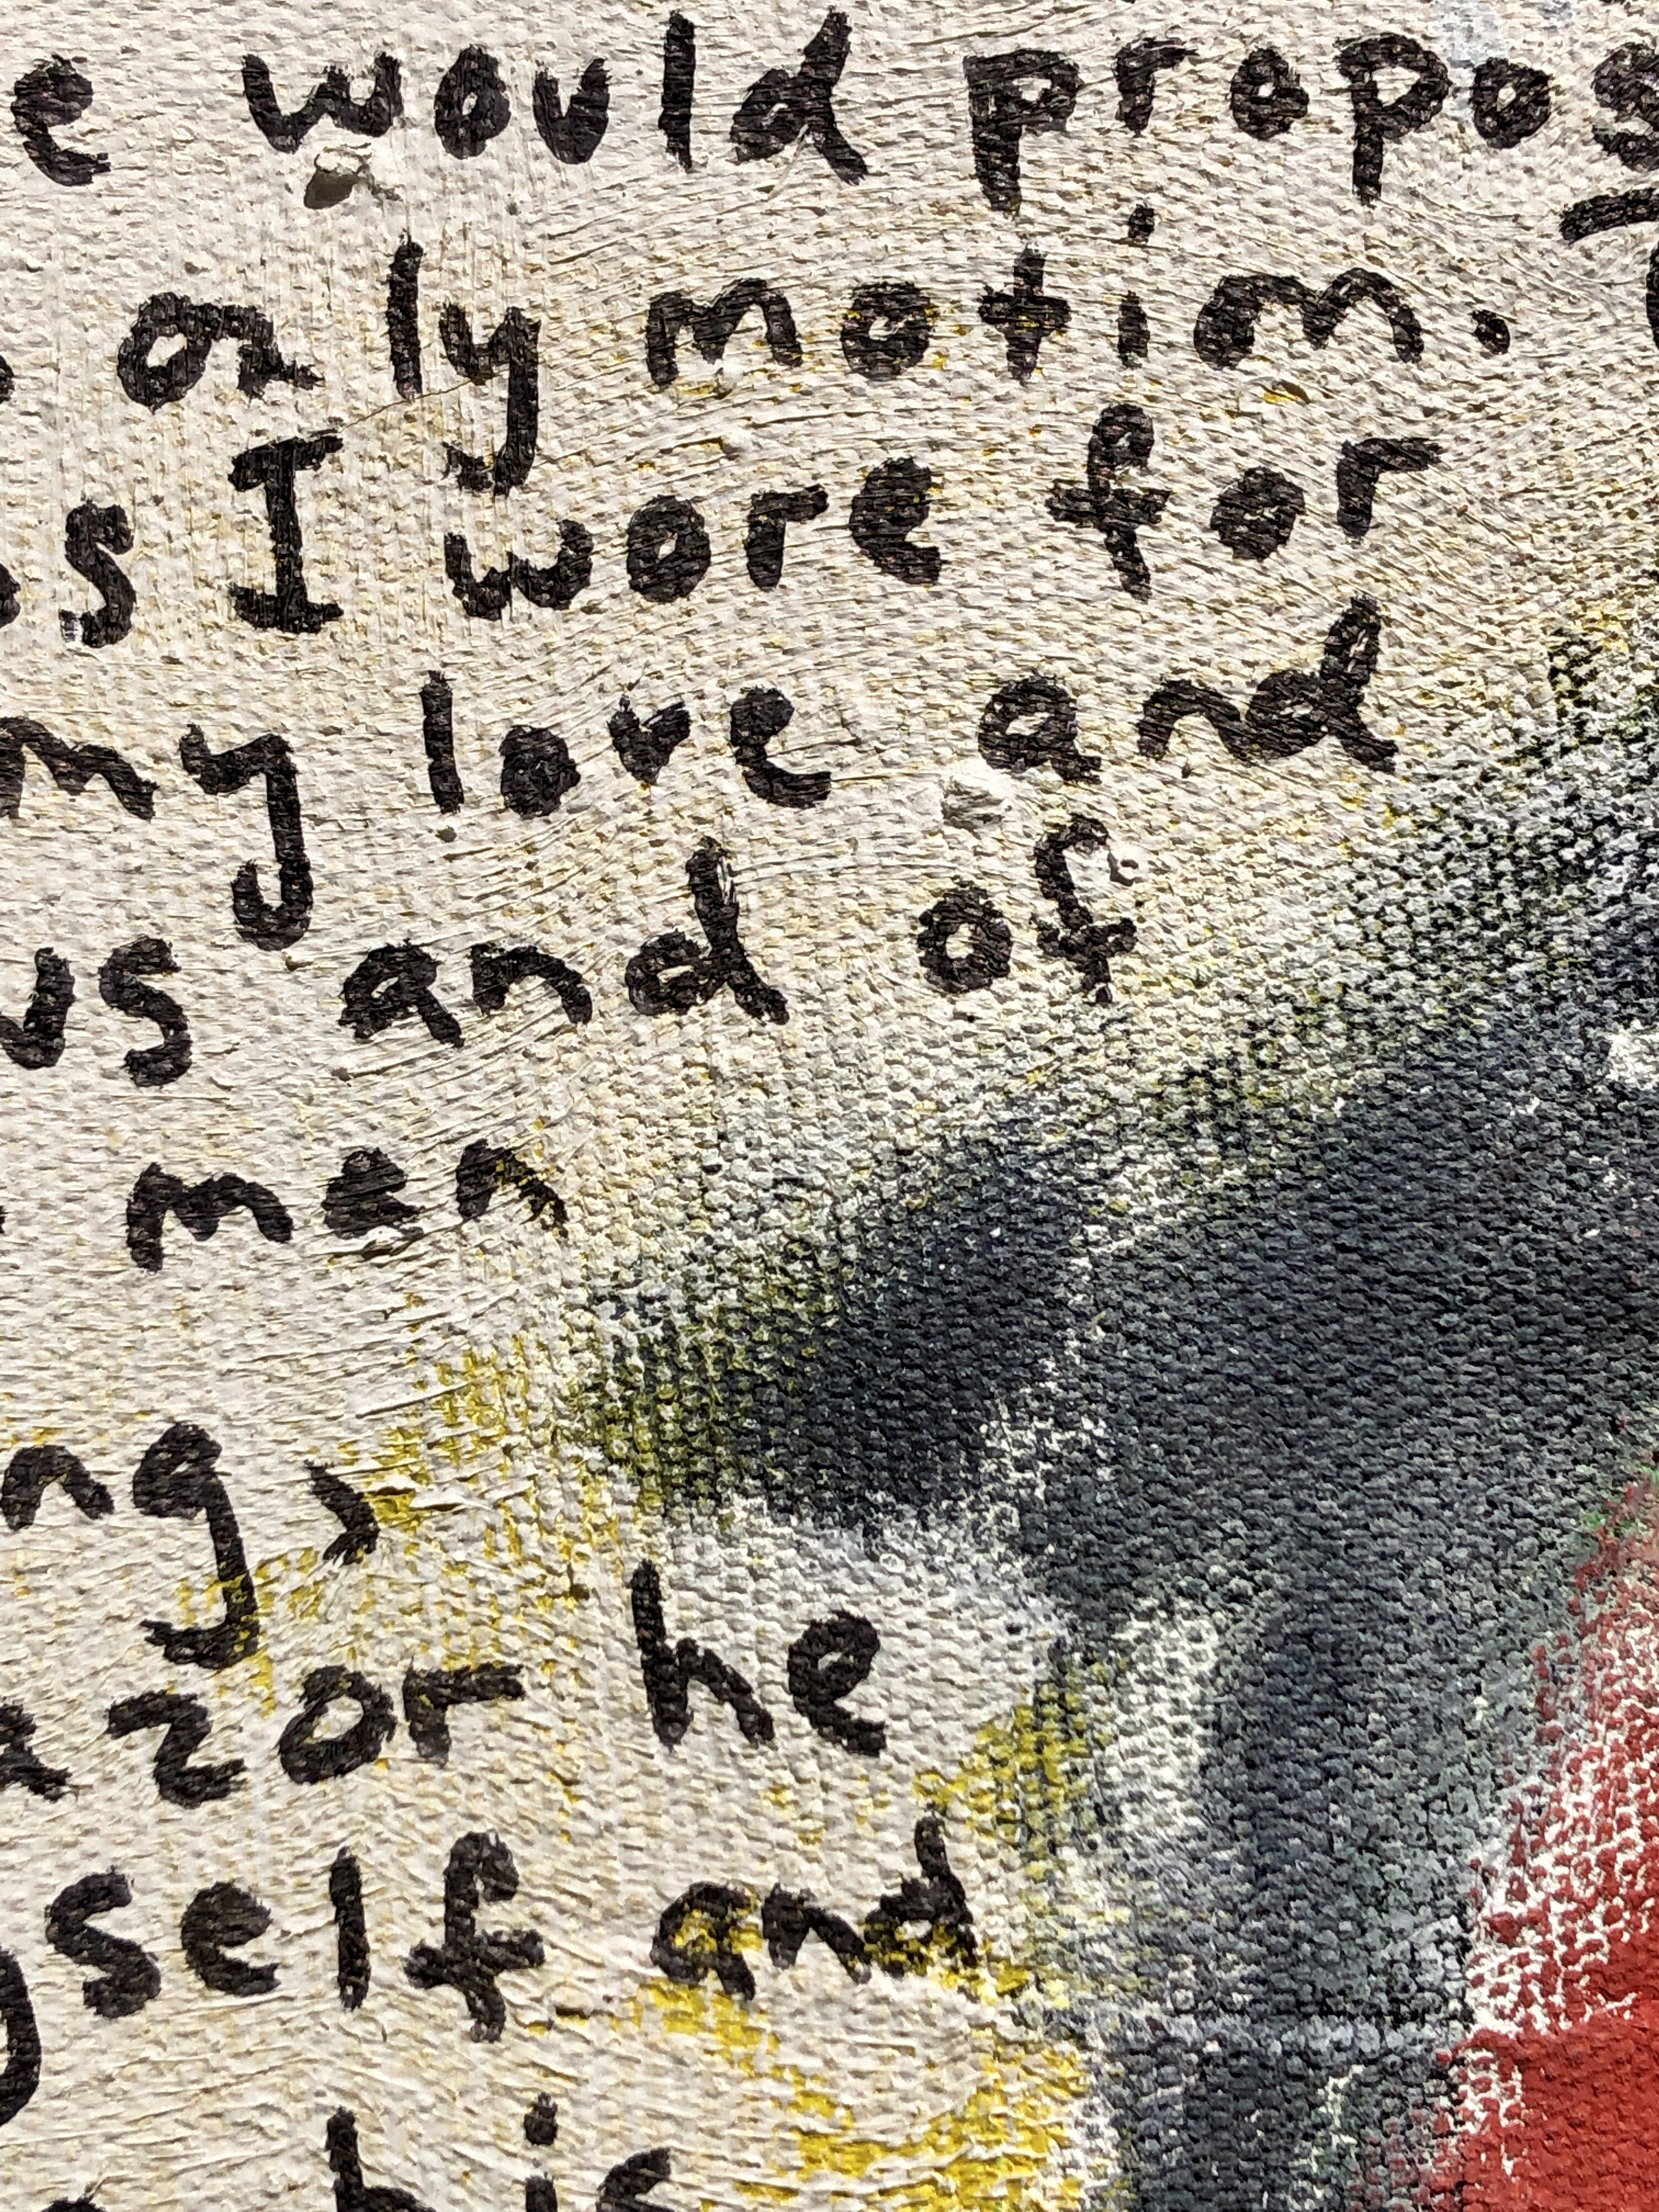 e would propos
only motion.
s I wore for
my love and
us and of
men
ng,
azor he
yself and